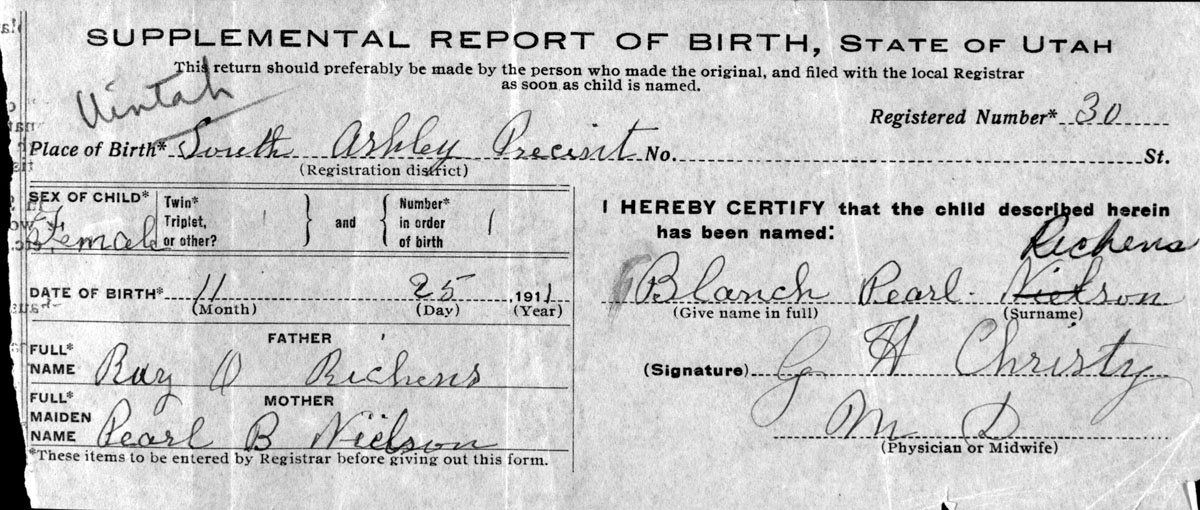 SUPPLEMENTAL REPORT OF BIRTH, STATE OF UTAH
This return should preferably be made by the person who made the original, and filed with the local Registrar
as soon as child is named.
Uintah
Registered Number* 30
Place of Birth* South Ashley Precint No. St.
(Registration district)
SEX OF CHILD*
Female
Twin*
Triplet,
or other?
} and {
Number*
in order
of birth
1
DATE OF BIRTH* 11 25 1911
(Month) (Day) (Year)
FATHER
FULL*
NAME Ray O Richens
MOTHER
FULL*
MAIDEN
NAME Pearl B Nielson
*These items to be entered by Registrar before giving out this form.
I HEREBY CERTIFY that the child described herein
has been named:
Richens
Blanch Pearl Nielson
(Give name in full) (Surname)
(Signature) G H Christy
M D
(Physician or Midwife)